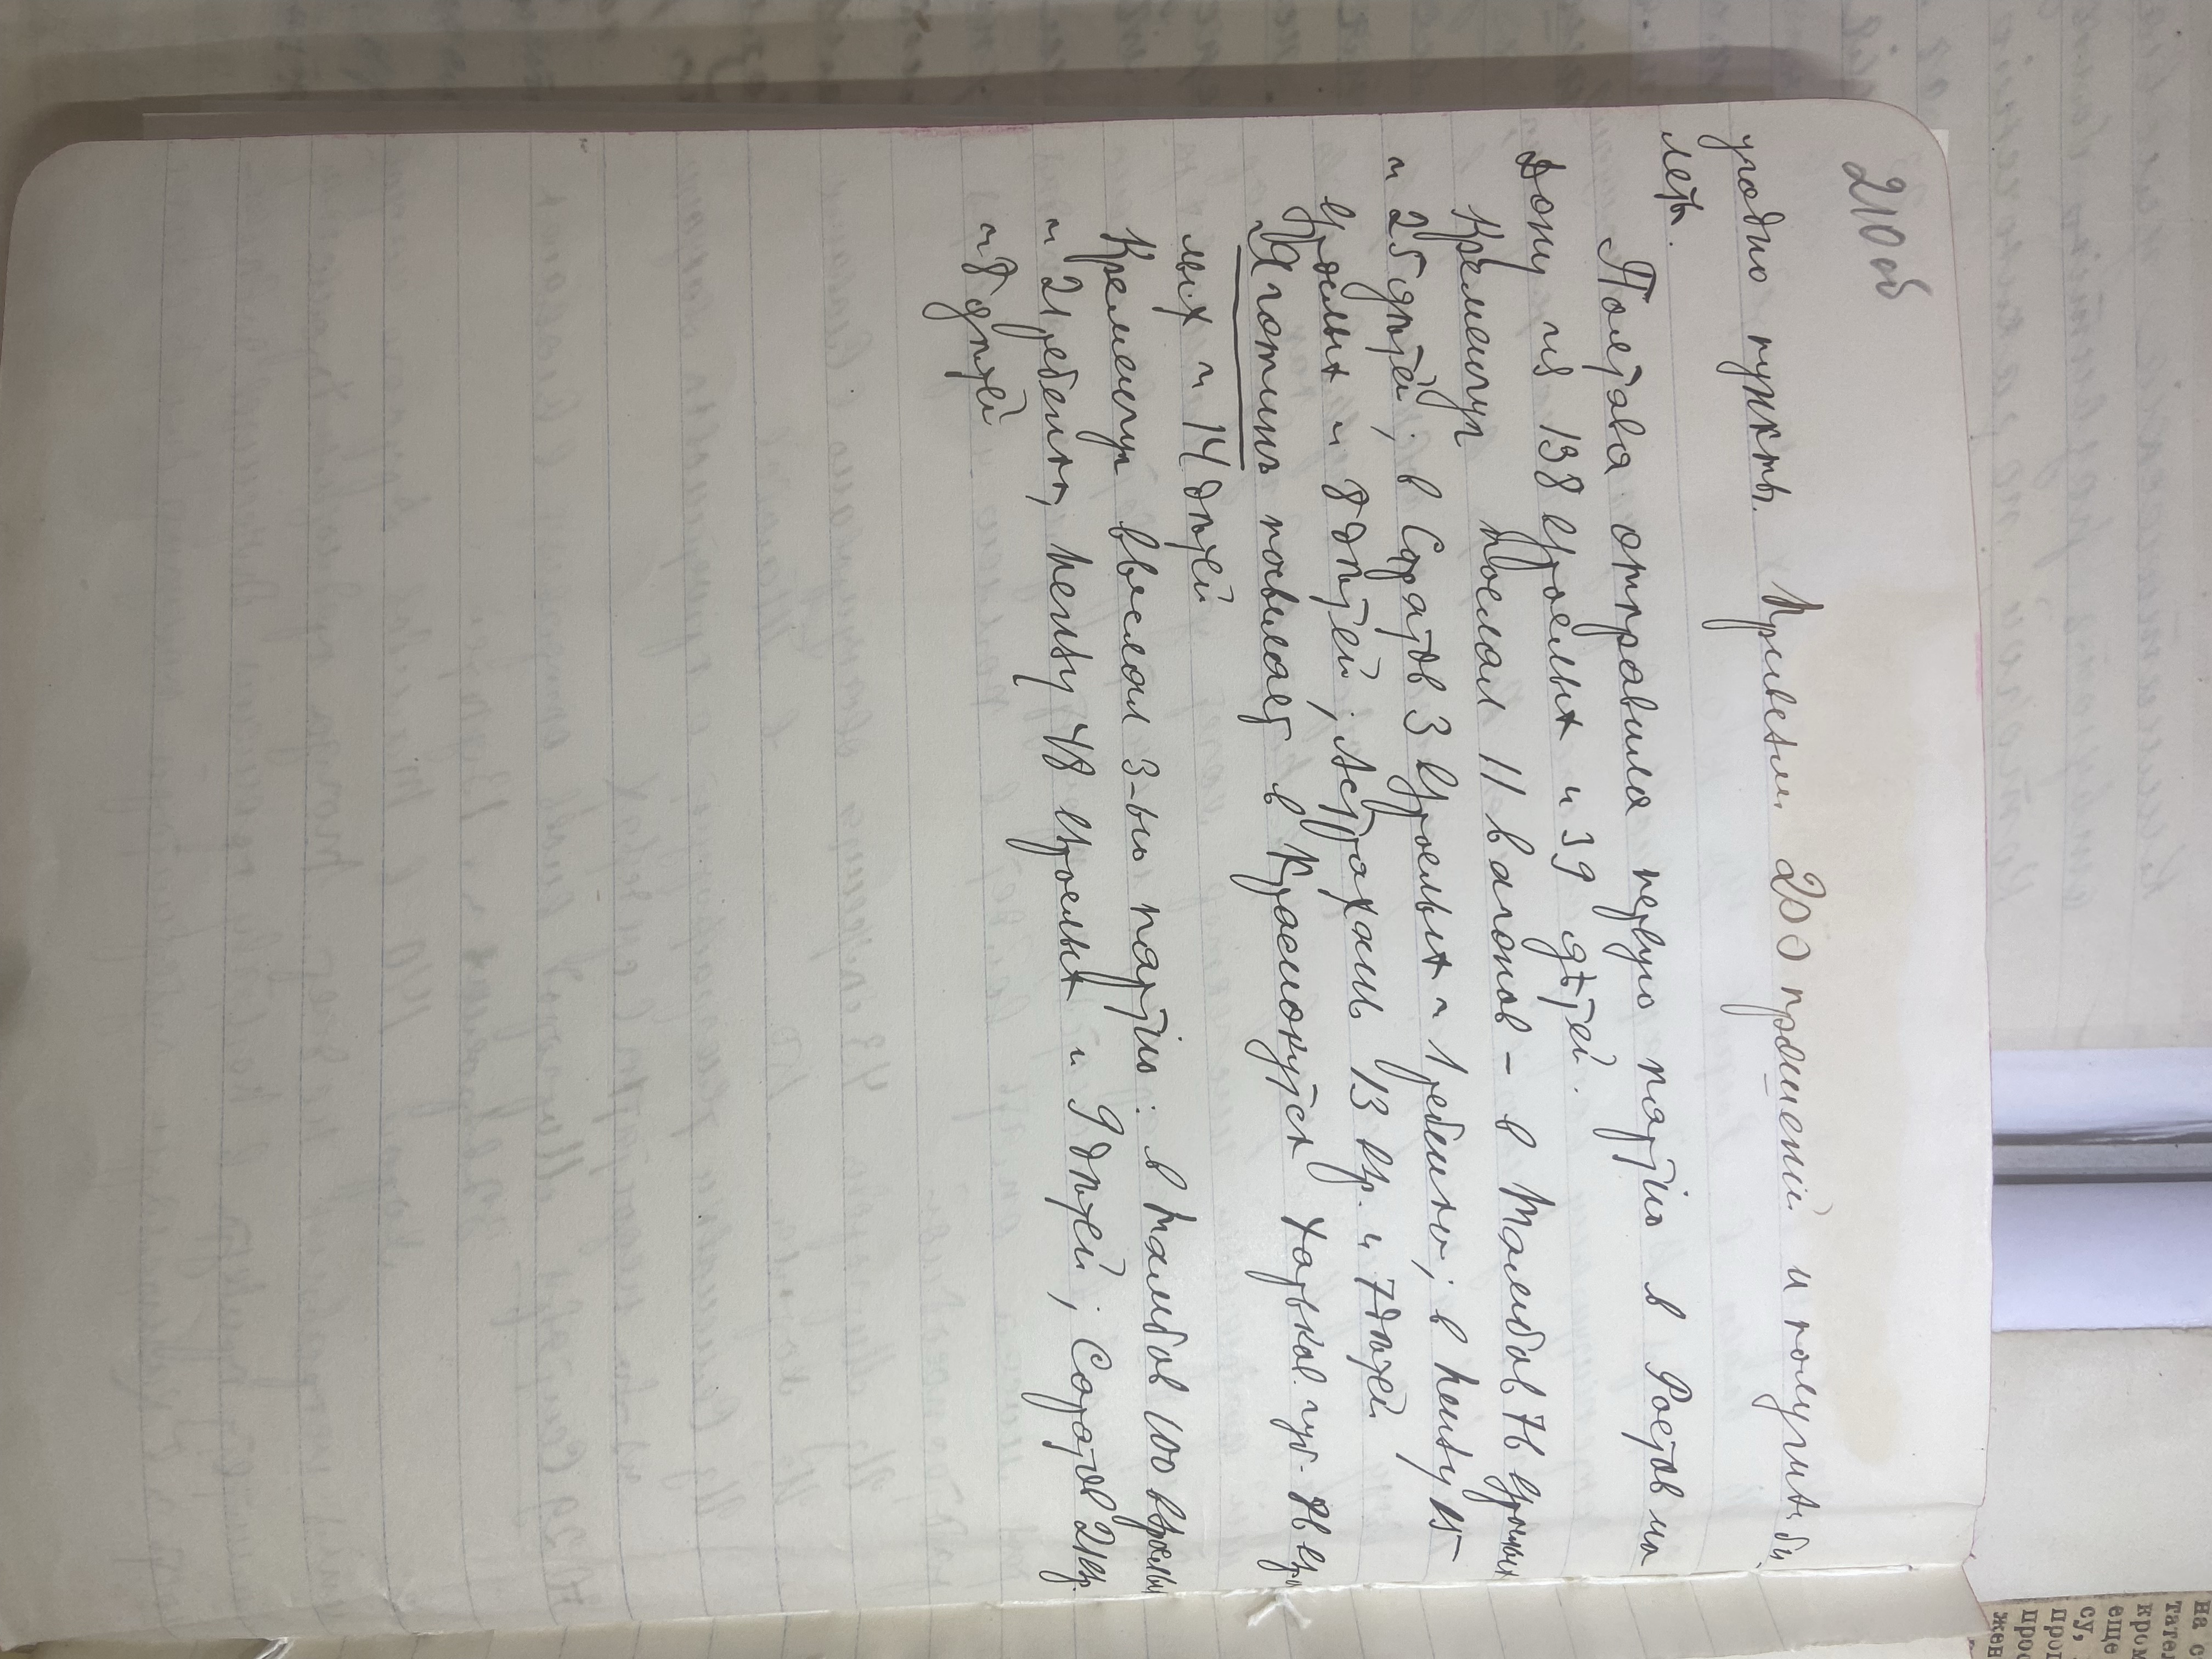 210об
угодно пункты. Привезти 200 прошений и получить би
леты.
Полтава отправила первую партію в Ростов на
Дону из 138 взрослых и 39 дѣтей.
Кременчуг послал 11 вагонов – в Тамбов 76 взрослых
и 25 дѣтей, в Саратов 3 взрослых и 1 ребенка; в Пензу 15
взрослых и 8 дѣтей; Астрахань 13 взр. и 7 дѣтей
Яготинъ посылает в Краснокутск Харьков. губ. 76 взрос
лых и 14 дѣтей
Кременчуг выслал 3-ью партію: в Тамбов 100 взрослых
и 21 ребенка, Пензу 48 взрослых и 9 дѣтей; Саратов 21 взр.
и 8 дѣтей